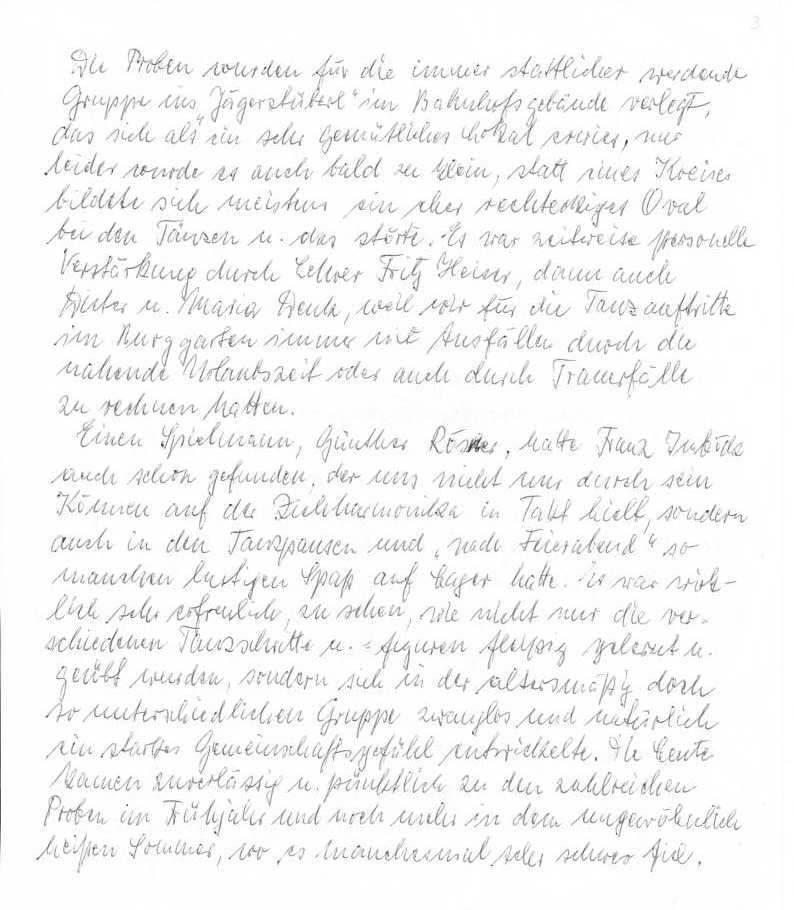 3
Die Proben wurden für die immer stattlicher werdende
Gruppe ins "Jägerstüberl" im Bahnhofsgebände verlegt,
das sich als ein sehr gemütliches Lokal erwies, nur
leider wurde es auch bald zu klein, statt eines Kreises
bildete sich meistens ein eher rechteckiges Oval
bei den Tänzen u. das störte. Es war zeitweise personelle
Verstärkung durch Lehrer Fritz Heiser, dann auch
Dieter u. Maria Denk, weil wir für die Tanzauftritte
im Burggarten immer mit Ausfällen durch die
nahende Urlaubszeit oder auch durch Trauerfälle
zu rechnen hatten.
Einen Spielmann, Günther, hatte Franz
auch schon gefunden, der uns nicht nur durch sein
Können auf der Ziehharmonika in Takt hielt, sondern
auch in den Tanzpausen und "nach Feierabend" so
manchen lustigen Spaß auf Lager hatte. Es war wirk-
lich sehr erfreulich, zu sehen, wie nicht nur die ver-
schiedenen Tanzschritte u. -figuren fleißig gelernt u.
geübt wurden, sondern sich in der altersmäßig doch
so unterschiedlichen Gruppe zwanglos und natürlich
ein starkes Gemeinschaftsgefühl entwickelte. Die Leute
kamen zuverlässig u. pünktlich zu den zahlreichen
Proben im Frühjahr und noch mehr in dem ungewöhnlich
heißen Sommer, wo es manchesmal sehr schwer fiel.